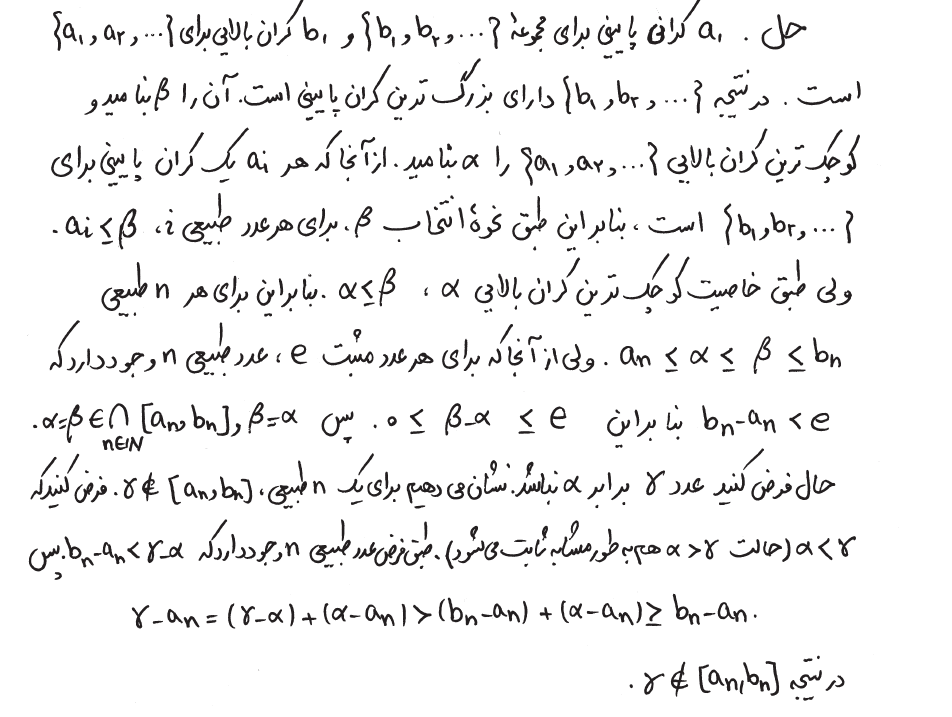 حل . a₁ کرانی پایینی برای مجموعهٔ {b₁ و b₂ و ...} و b₁ کران بالایی برای {a₁ و a₂ و ...}
است . در نتیجه {b₁ و b₂ و ...} دارای بزرگ ترین کران پایینی است. آن را β بنامید و
کوچک ترین کران بالایی {a₁ و a₂ و ...} را α بنامید . از آنجا که هر aᵢ یک کران پایینی برای
{b₁ و b₂ و ...} است ، بنابراین طبق نحوهٔ انتخاب β . برای هر عدد طبیعی i ، aᵢ ≤ β .
ولی طبق خاصیت کوچک ترین کران بالایی α ، α ≤ β . بنابراین برای هر n طبیعی
aₙ ≤ α ≤ β ≤ bₙ . ولی از آنجا که برای هر عدد مثبت e ، عدد طبیعی n وجود دارد که
bₙ-aₙ < e بنابراین 0 ≤ β-α ≤ e . پس β=α و α=β ∈ ⋂_{n∈ℕ} [aₙ و bₙ] .
حال فرض کنید عدد γ برابر α نباشد. نشان می دهیم برای یک n طبیعی ، γ ∉ [aₙ و bₙ] . فرض کنید که
α < γ (حالت α > γ هم به طور مشابه ثابت می شود) . طبق فرض عدد طبیعی n وجود دارد که bₙ-aₙ < γ-α . پس
γ-aₙ = (γ-α) + (α-aₙ) > (bₙ-aₙ) + (α-aₙ) ≥ bₙ-aₙ .
در نتیجه γ ∉ [aₙ, bₙ] .